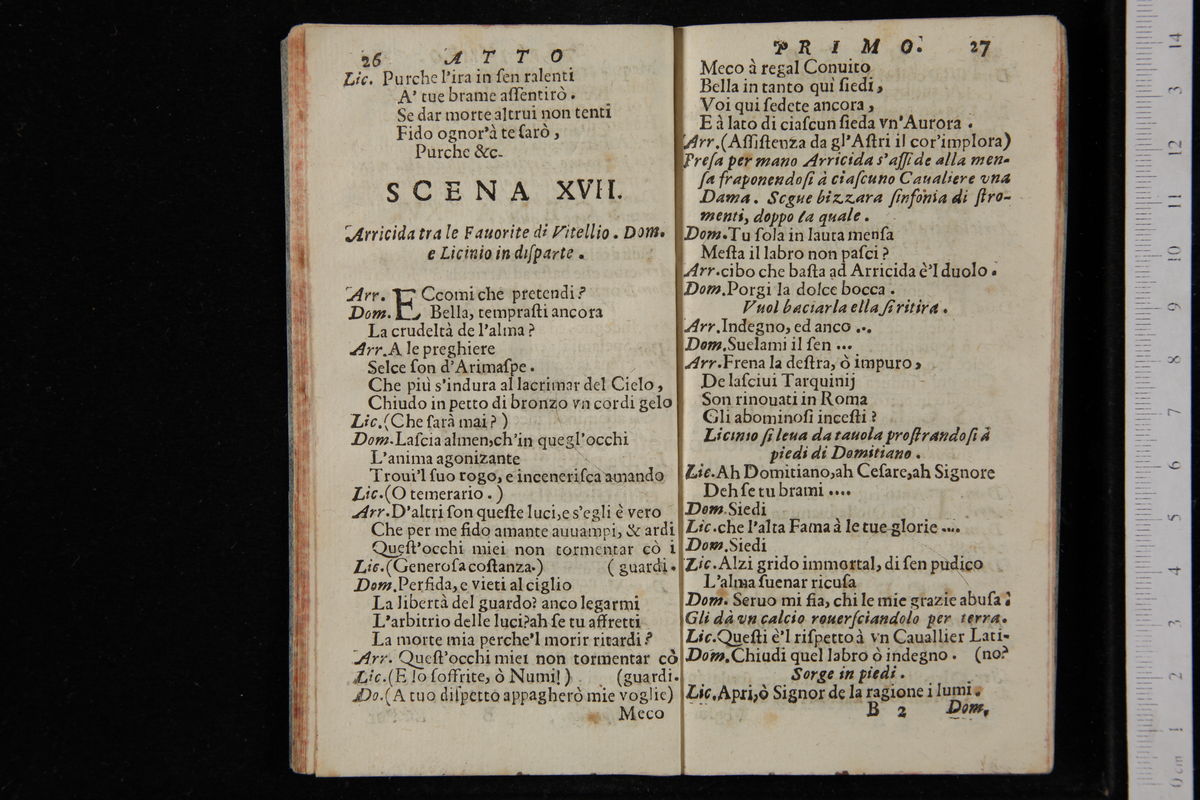 26 ATTO
Lic. Purche l'ira in ſen ralenti
A' tue brame aſſentirò.
Se dar morte altrui non tenti
Fido ognor'à te ſarò,
Purche &c.
SCENA XVII.
Arricida tra le Fauorite di Vitellio. Dom.
e Licinio in diſparte.
Arr. ECcomi che pretendi?
Dom. Bella, tempraſti ancora
La crudeltà de l'alma?
Arr. A le preghiere
Selce ſon d'Arimaſpe.
Che più s'indura al lacrimar del Cielo,
Chiudo in petto di bronzo vn cor di gelo
Lic. (Che ſarà mai?)
Dom. Laſcia almen, ch'in quegl'occhi
L'anima agonizante
Troui'l ſuo rogo, e inceneriſca amando
Lic. (O temerario.)
Arr. D'altri ſon queſte luci, e s'egli è vero
Che per me fido amante auuampi, & ardi
Queſt'occhi miei non tormentar cò i
Lic. (Generoſa coſtanza.) (guardi.
Dom. Perfida, e vieti al ciglio
La libertà del guardo? anco legarmi
L'arbitrio delle luci? ah ſe tu affretti
La morte mia perche'l morir ritardi?
Arr. Queſt'occhi miei non tormentar cò
Lic. (E lo ſoffrite, ò Numi!) (guardi.
Do. (A tuo diſpetto appagherò mie voglie)
Meco
PRIMO. 27
Meco à regal Conuito
Bella in tanto quì ſiedi,
Voi qui ſedete ancora,
E à lato di ciaſcun ſieda vn'Aurora.
Arr. (Aſſiſtenza da gl'Aſtri il cor'implora)
Preſa per mano Arricida s'aſſide alla men-
ſa fraponendoſi à ciaſcuno Caualiere vna
Dama. Segue bizzara ſinfonia di ſtro-
menti, doppo la quale.
Dom. Tu ſola in lauta menſa
Meſta il labro non paſci?
Arr. cibo che baſta ad Arricida è'l duolo.
Dom. Porgi la dolce bocca.
Vuol baciarla ella ſi ritira.
Arr. Indegno, ed anco ...
Dom. Suelami il ſen ...
Arr. Frena la deſtra, ò impuro,
De laſciui Tarquinij
Son rinouati in Roma
Gli abominoſi inceſti?
Licinio ſi leua da tauola proſtrandoſi à
piedi di Domitiano.
Lic. Ah Domitiano, ah Ceſare, ah Signore
Deh ſe tu brami ....
Dom. Siedi
Lic. che l'alta Fama à le tue glorie ....
Dom. Siedi
Lic. Alzi grido immortal, di ſen pudico
L'alma ſuenar ricuſa
Dom. Seruo mi ſia, chi le mie grazie abuſa.
Gli dà vn calcio rouerſciandolo per terra.
Lic. Queſti è'l riſpetto à vn Cauallier Lati-
Dom. Chiudi quel labro ò indegno. (no?
Sorge in piedi.
Lic. Apri, ò Signor de la ragione i lumi.
B 2 Dom.
14
13
12
11
10
9
8
7
6
5
4
3
2
1
0 cm